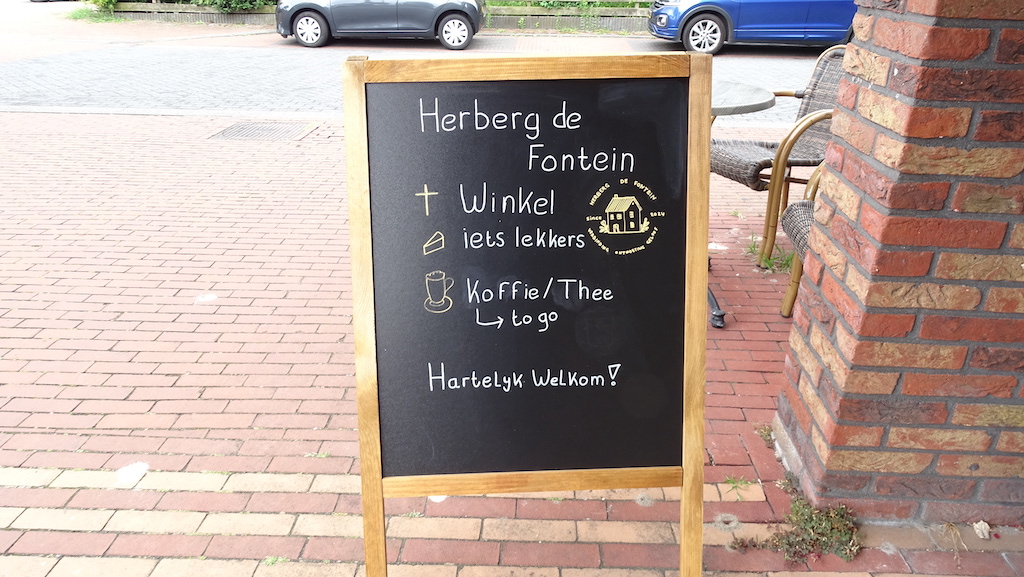 Herberg de
Fontein
Winkel
iets lekkers
HERBERG DE FONTEIN
Since 2024
Koffie/Thee
to go
Hartelyk Welkom!